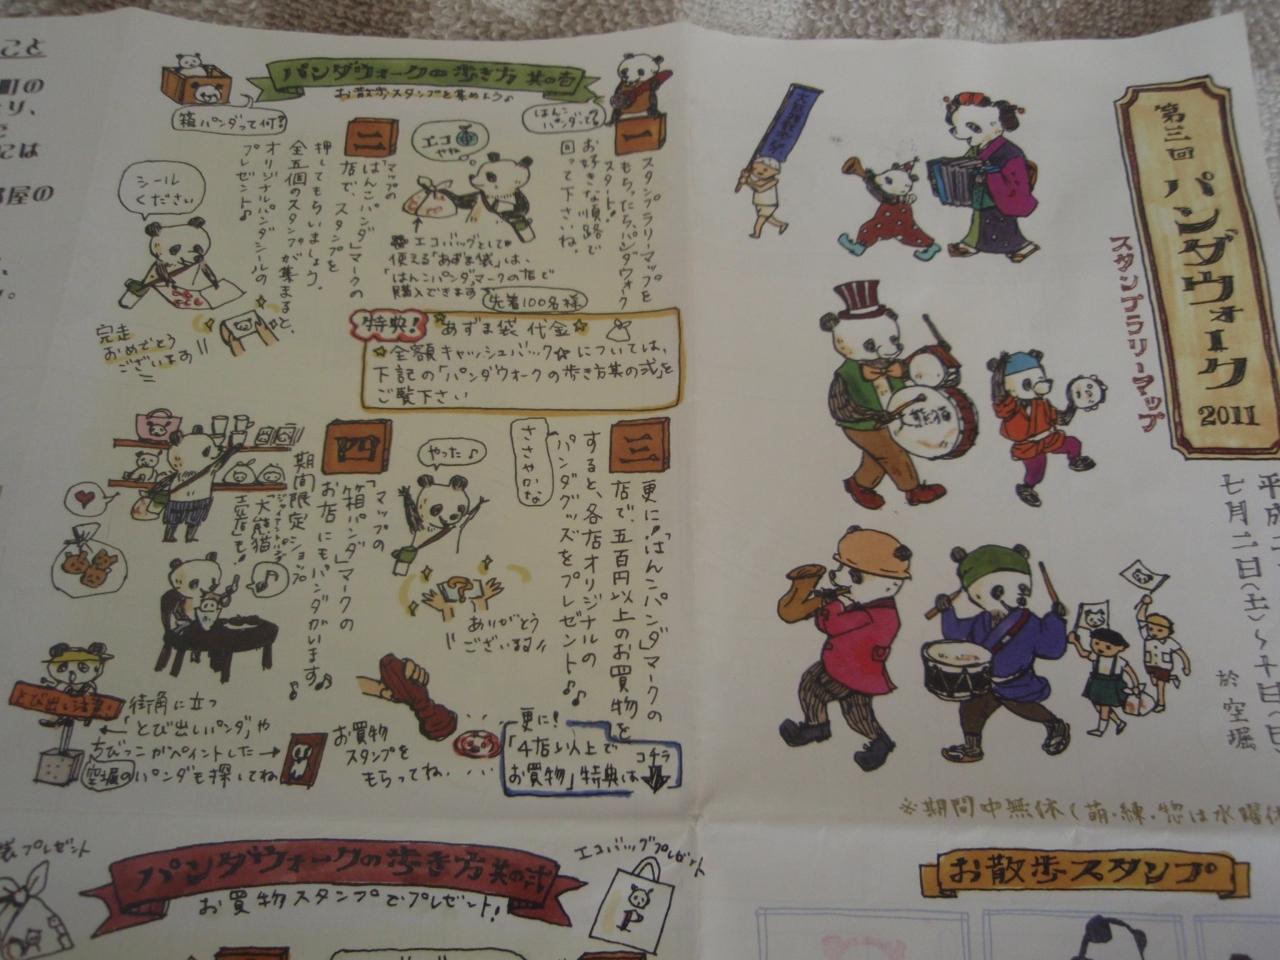 第三回 パンダウォーク 2011
スタンプラリーマップ
七月二日(土)～十日(日)
於 空堀
大熊猫
※期間中無休(萌・練・惣は水曜休
お散歩スタンプ
パンダウォークの歩き方 其の壱
お散歩スタンプを集めよう♪
箱パンダって何?
はんこパンダって?
一
スタンプラリーマップを
もらったら、パンダウォーク
スタート!
お好きな順路で
回って下さいね。
エコやね
エコバッグとして
使える「あずま袋」は、
「はんこパンダ」マークの店で
購入できます
先着100名様
二
マップの
「はんこパンダ」マークの
店で、スタンプを
押してもらいましょう。
全五個のスタンプが集まると、
オリジナルパンダシールの
プレゼント♪
シール
ください
完走
おめでとう
ございます
特典! あずま袋 代金
☆全額キャッシュバック☆については、
下記の「パンダウォークの歩き方其の弐」を
ご覧下さい
三
更に!「はんこパンダ」マークの
店で、五百円以上のお買物を
すると、各店オリジナルの
パンダグッズをプレゼント♪
ささやかな
やった♪
ありがとう
ございます
四
「マップの
「箱パンダ」マークの
お店にもパンダがいます♪
期間限定ショップ
「大熊猫
売店」も!
とび出し注意!
街角に立つ
「とび出しパンダ」や
ちびっこがペイントした
空堀のパンダも探してね
お買物
スタンプを
もらってね・・・
更に!
「4店以上で
お買物」特典は
コチラ
パンダウォークの歩き方 其の弐
お買物スタンプでプレゼント!
エコバッグプレゼント
プレゼント
こと
町の
には
部屋の